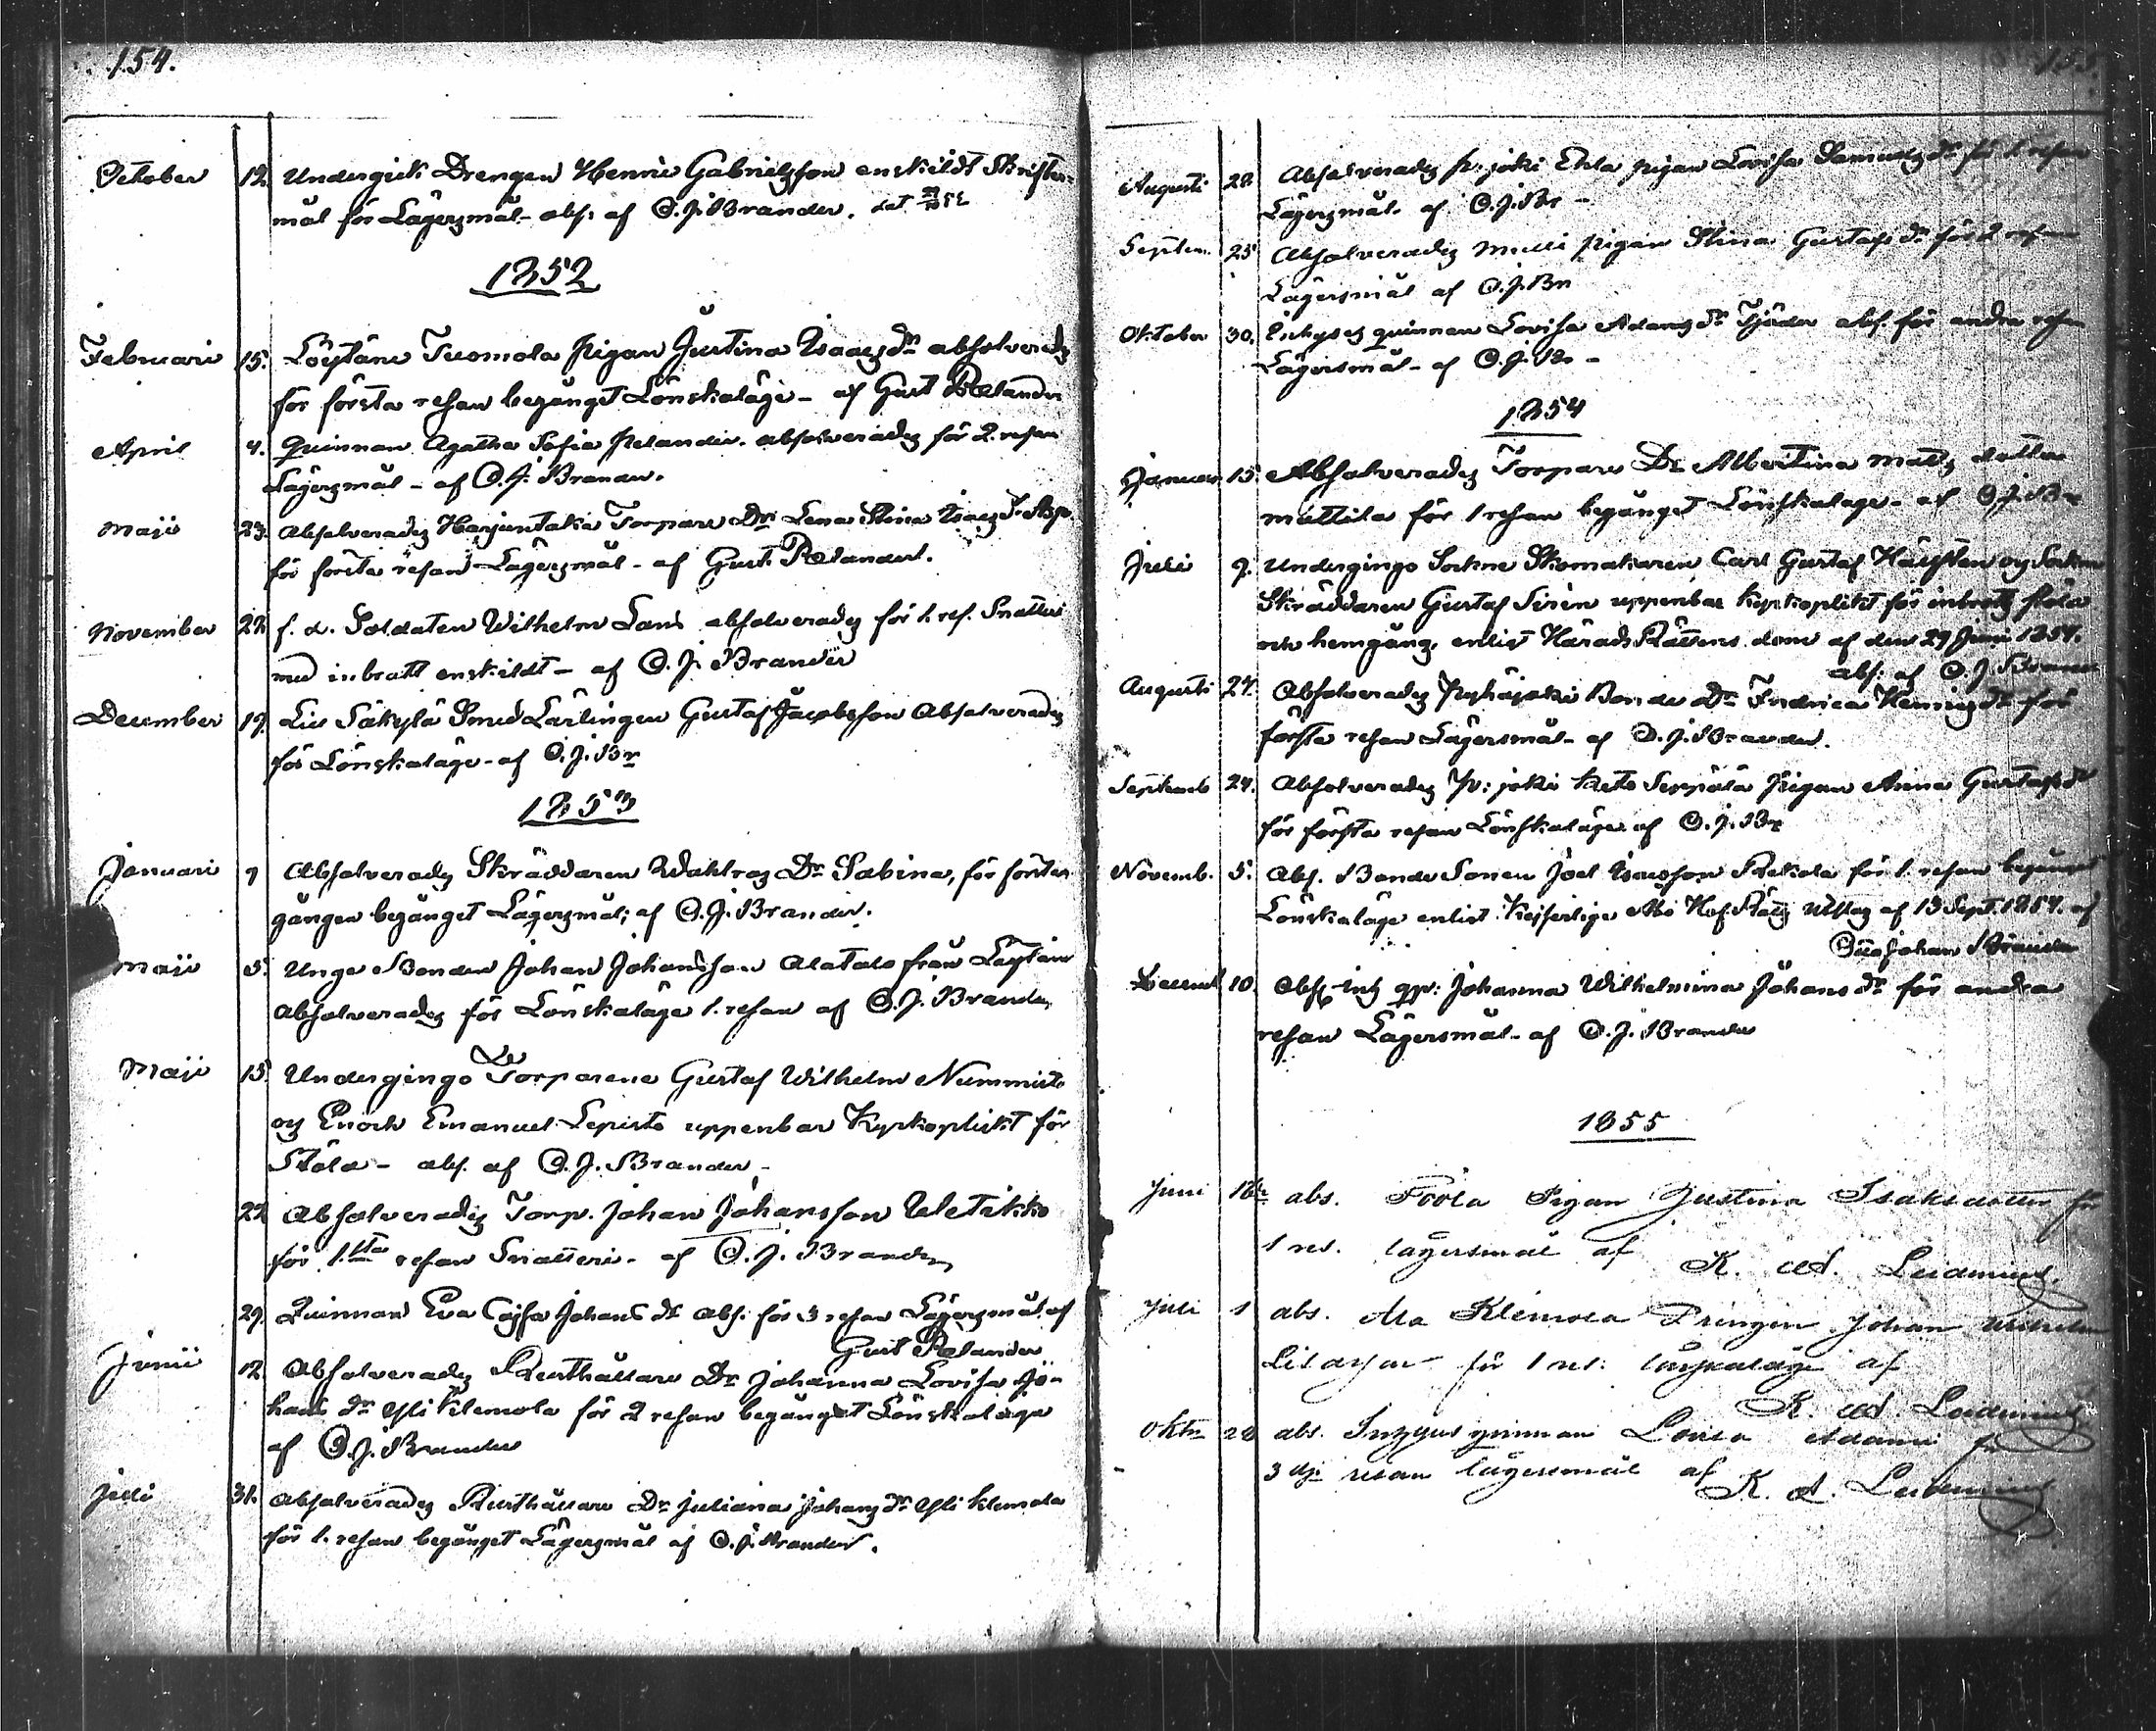 154.
October 12. Undergick Drengen Henric Gabrielsson enskildt Skrifter-
mål för Lägersmål - abs: af C. J. Brander.
1852
Februarii 15. Löytäne Tuomola Pigan Justina Isaacs dr absolverads
för första resan begånget Lönskaläge - af Gust Relander
April 4. Quinnan Agatha Sofia Relander absolverades för 2. resan
Lägersmål - af C. J. Brander.
Maji 23. Absolverades Harjuntaka Torpare Dr Lena Stina Isaacs dr
för första resan Lägersmål - af Gust. Relander.
November 22 f. d. Soldaten Wilhelm Lans absolverades för 1. res. Snatteri
med inbrott enskildt - af C. J. Brander
December 19. Säkylä Smed Lärlingen Gustaf Jacobsson Absolverades
för Lönskaläge - af C. J. Br
1853
Januarii 9 Absolverades Skräddaren Dr Sabina, för första
gången begånget Lägersmål; af C. J. Brander.
Maji 5. Unge Bonden Johan Johansson Alatalo från Löytäne
Absolverades för Lönskaläge 1. resan af C. J. Brander
Maji 15. Undergingo Torparene Gustaf Wilhelm Nummisto
och Enoch Emanuel Lepistö uppenbar Kyrkoplikt för
Stöld - abs. af C. J. Brander -
22 Absolverades Torp. Johan Johansson Uletikko
för 1.sta resan Snatteri - af C. J. Brander
29. Quinnan Eva Cajsa Johans dr abs: för 3 resan Lägersmål af
Gust Relander
Junii 12 Absolverades Rusthållare Dr Johanna Lovisa Jo-
hans dr Yli Klemola för 2 resan begånget Lönskaläge
af C. J. Brander
Juli 31. Absolverades Rusthållare Dr Juliana Johans dr Yli Klemola
för 1. resan begånget Lägersmål af C. J. Brander.
155.
Augusti 28. Absolverades p: joki Pigan Lovisa Samuels dr för 1. resan
Lägersmål. af C. J. Br -
Septem. 25 Absolverades pigan Stina Gustafs dr för 2 resan
Lägersmål af C. J. Br
Oktober 30. quinnan Lovisa Adams dr Tjäder abs. för andra resan
Lägersmål - af C. J. Br -
1854
Januar. 15. Absolverades Torpare Dr Albertina Mats dotter
Mattila för 1 resan begånget Lönskaläge - af C. J. Br
Juli 9. Undergingo Sockne Skomakaren Carl Gustaf och Sockne
Skräddaren Gustaf Sirén uppenbar kyrkoplikt för inbrotts stöld
och hemgång, enligt Härads Rättens dom af den 29 Juni 1854.
abs: af C. J. Brander
Augusti 27. Absolverades Pyhäjoki Bonde Dr Fredrica Henrics dr för
första resan Lägersmål - af C. J. Brander.
Septemb 24. Absolverades P: joki Keto Seppälä Pigan Anna Gustafs dr
för första resan Lönskaläge af C. J. Br
Novemb. 5. Abs. Bonde Sonen Joel Isacsson för 1. resan begånget
Lönskaläge enligt Kejserlige Åbo Hof Rätts Utslag af 13 Sept. 1854. af
Johan Brander
Decemb 10. Abs. qv: Johanna Wilhelmina Johans dr för andra
resan Lägersmål - af C. J. Brander
1855
Juni abs. Pigan Justina Isaksdotter för
1 res. lägersmål af
K. Leidenius
Juli 1 abs. Ala Klemola Drengen Johan Wilhelm
för 1 res: lönskaläge af
K. Leidenius
Oktbr 28 abs. qvinnan Lovisa Adams för
3 dje resan lägersmål af
K. Leidenius